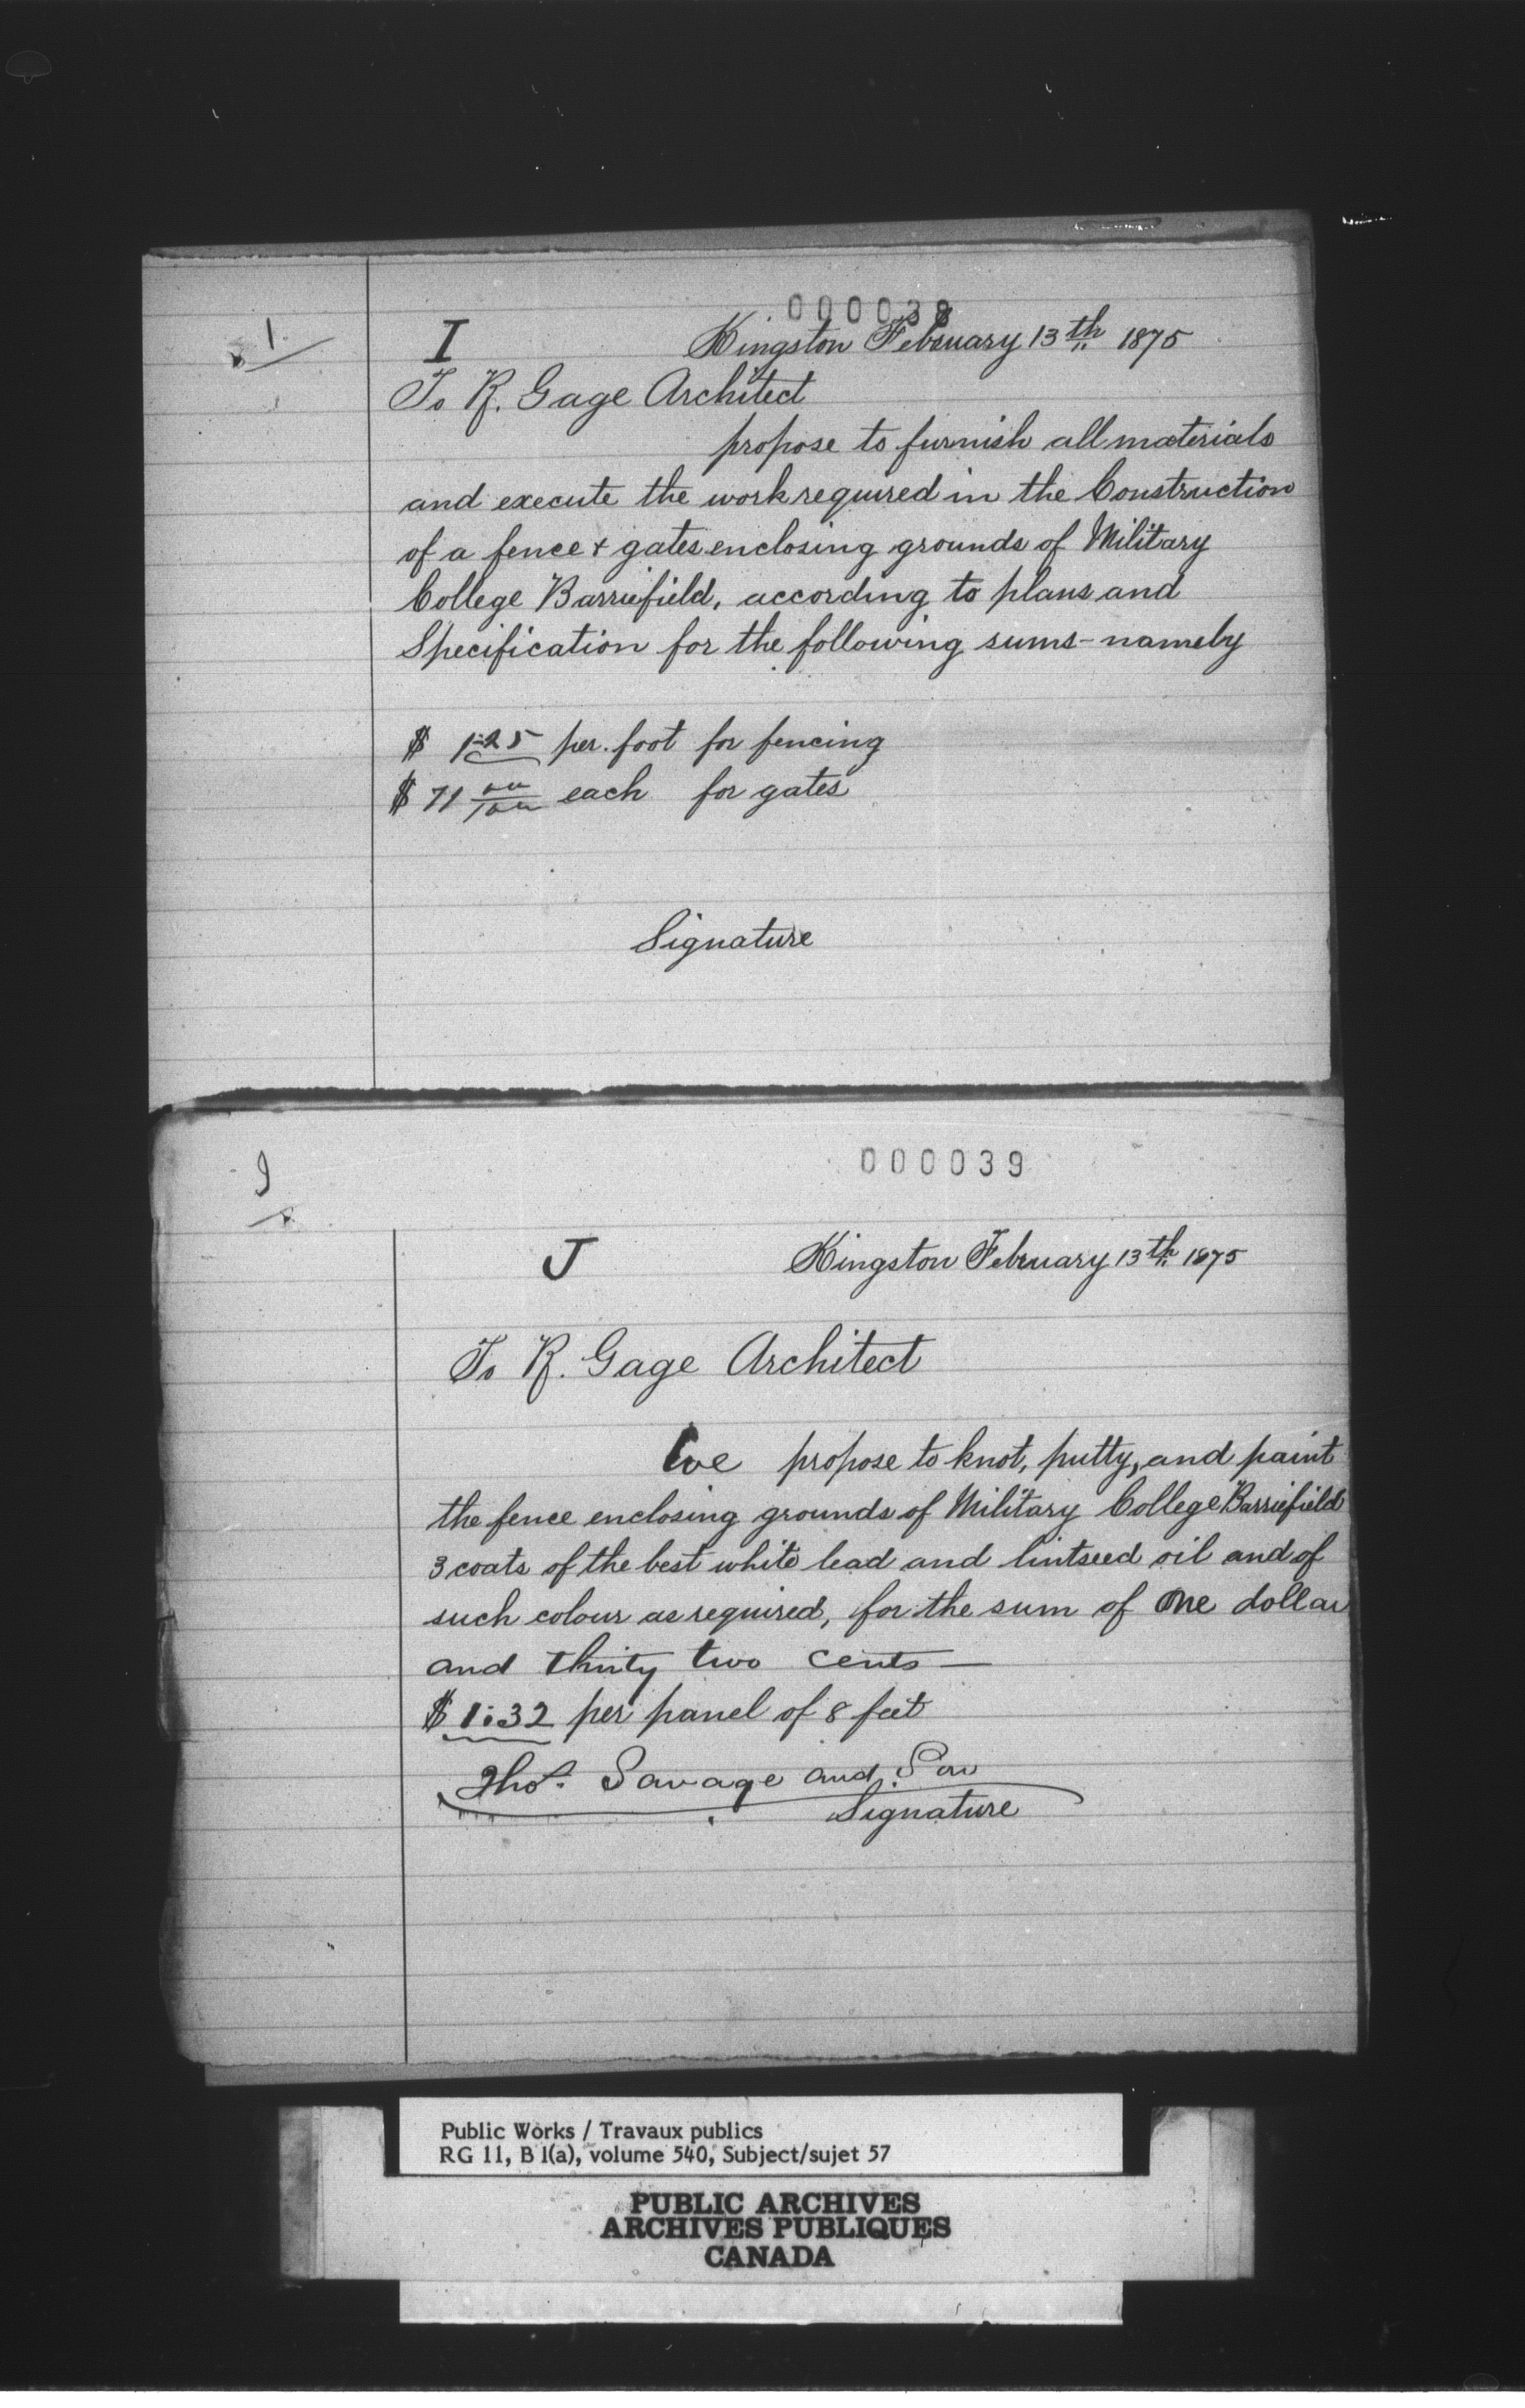 000038
1.
I
Kingston February 13th 1875
To R. Gage Architect
propose to furnish all materials
and execute the work required in the Construction
of a fence & gates enclosing grounds of Military
College Barriefield, according to plans and
Specification for the following sums - namely
$ 1.25 per. foot for fencing
$ 71 00/100 each for gates
Signature
000039
J
Kingston February 13th 1875
To R. Gage Architect
We propose to knot, putty, and paint
the fence enclosing grounds of Military College Barriefield
3 coats of the best white lead and lintseed oil and of
such colour as required, for the sum of One dollar
and thirty two cents —
$ 1:32 per panel of 8 feet
Thos. Savage and Son
Signature
Public Works / Travaux publics
RG 11, B 1(a), volume 540, Subject/sujet 57
PUBLIC ARCHIVES
ARCHIVES PUBLIQUES
CANADA